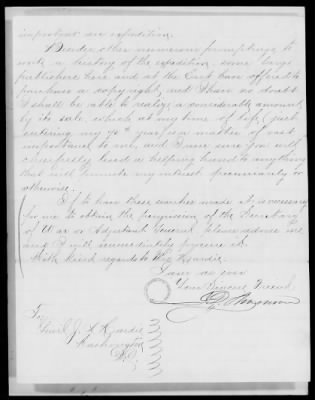 important an expedition.
Besides other numerous promptings to
write a history of the expedition, some large
publishers here and at the East have offered to
purchase a copyright, and I have no doubt
I shall be able to realize a considerable amount
by its sale, which at my time of life (just
entering my 70th year) is a matter of vast
importance to me, and I am sure you will
cheerfully lend a helping hand to anything
that will promote my interest pecuniarily or
otherwise.
If to have these searches made it is necessary
for me to obtain the permission of the Secretary
of War or Adjutant General, please advise me
and I will immediately procure it.
With kind regards to Mrs Hardie.
I am as ever
Your Sincere Friend
To
Genl J. A. Hardie
Washington
D.C.